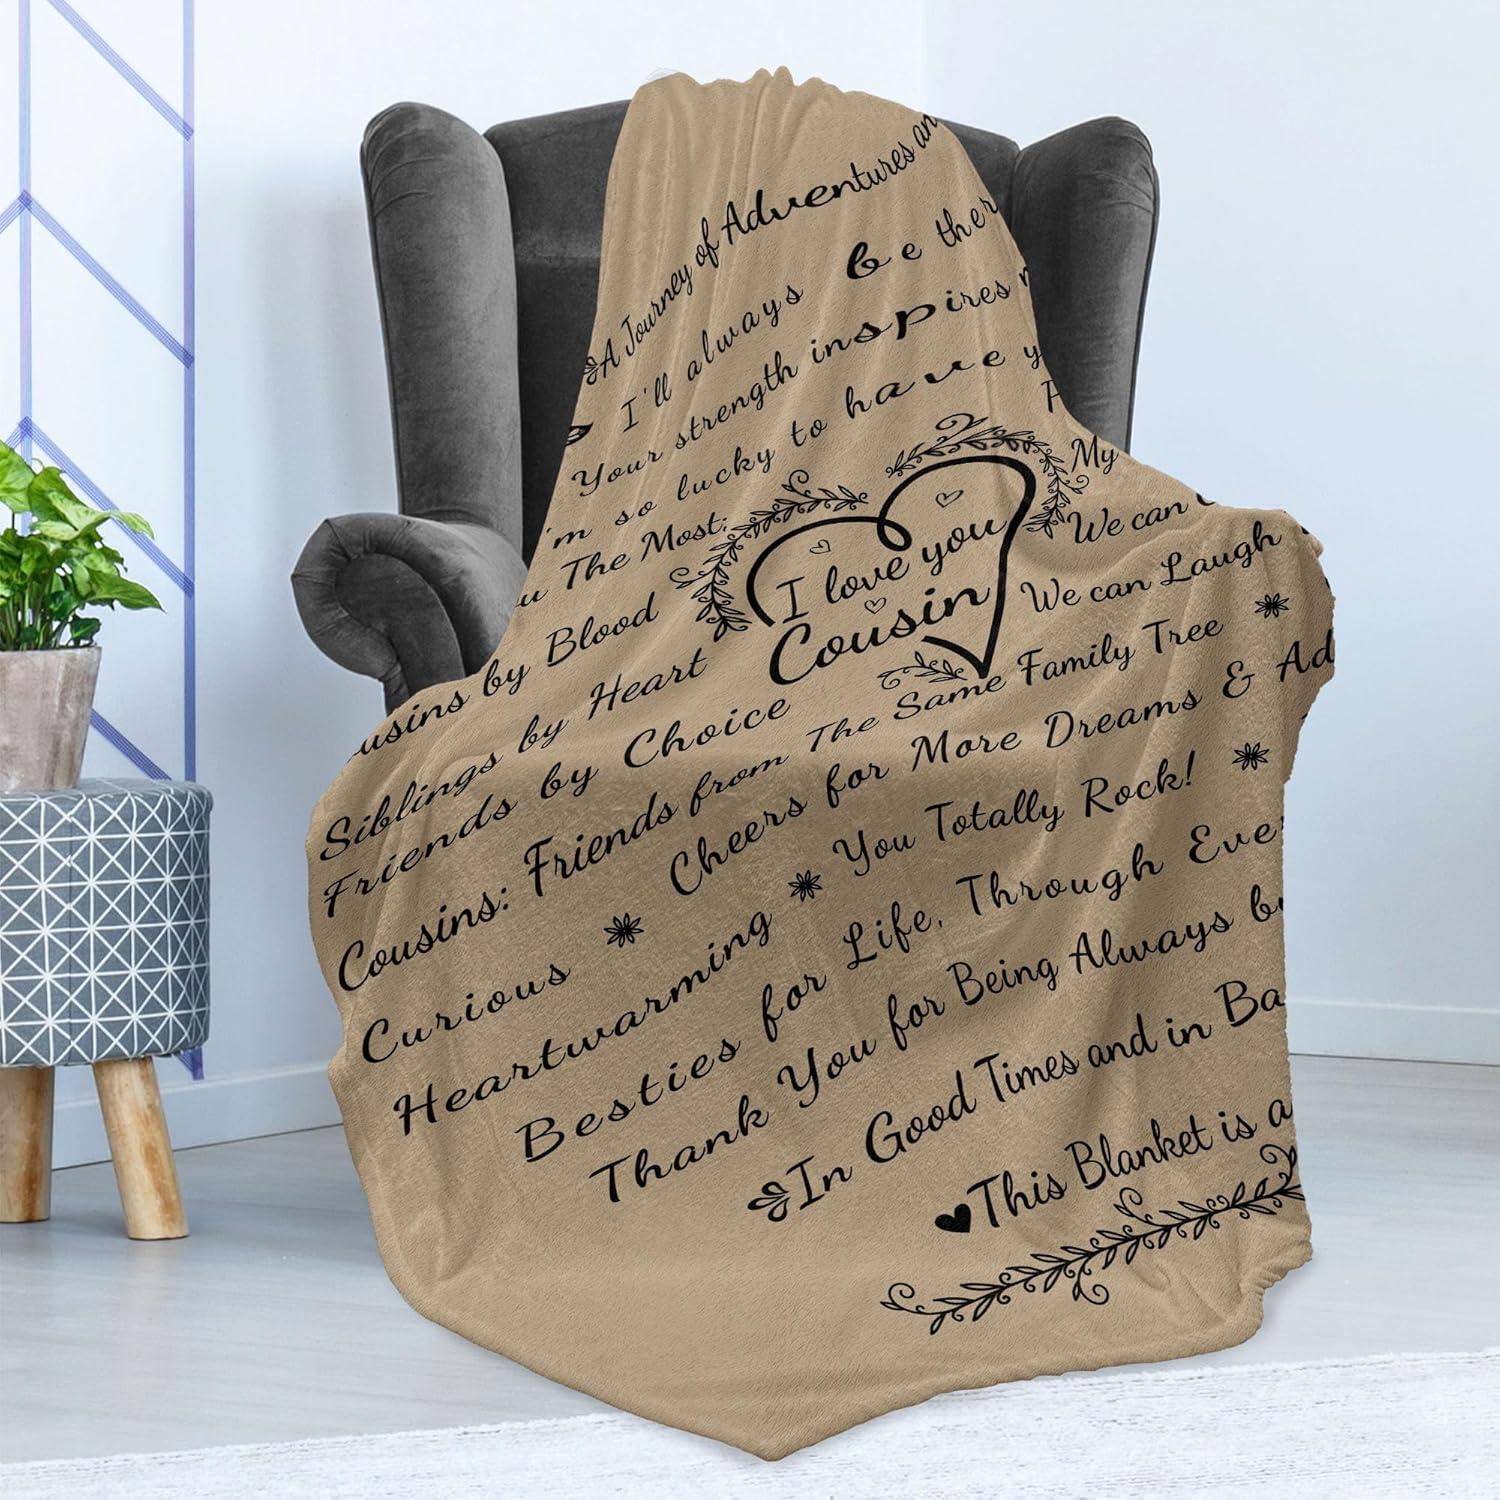 A Journey of Adventures
I'll always be
Your strength inspires
so lucky to have
The Most:
My
We can
I love you
Cousin
We can Laugh
by Blood
Siblings by Heart
Friends by Choice
Cousins: Friends from The Same Family Tree
Curious Cheers for More Dreams &
Heartwarming You Totally Rock!
Besties for Life, Through
Thank You for Being Always
In Good Times and in
This Blanket is a